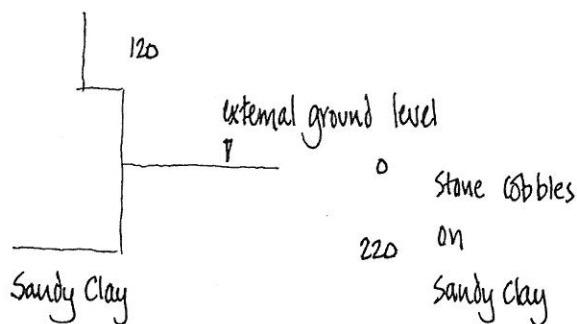 120
external ground level
0
Stone cobbles
on
Sandy Clay
220
Sandy Clay